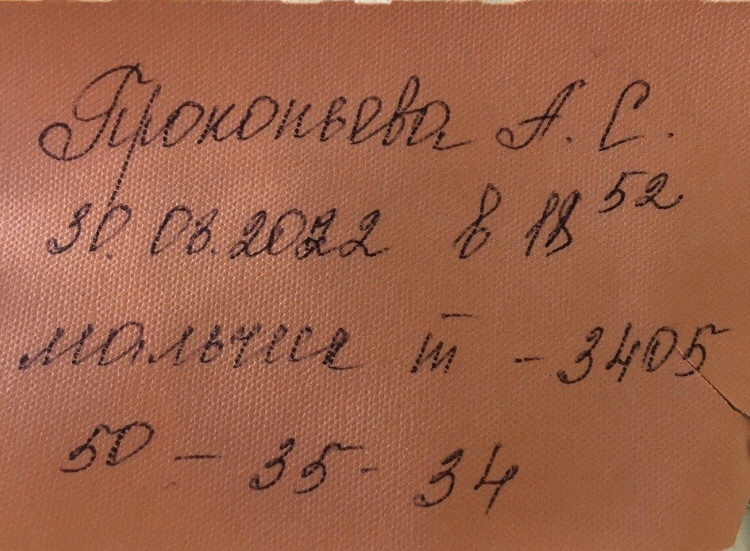 Прокопьева А. С.
30.08.2022 в 18 52
мальчик m̅ - 3405
50 - 35 - 34